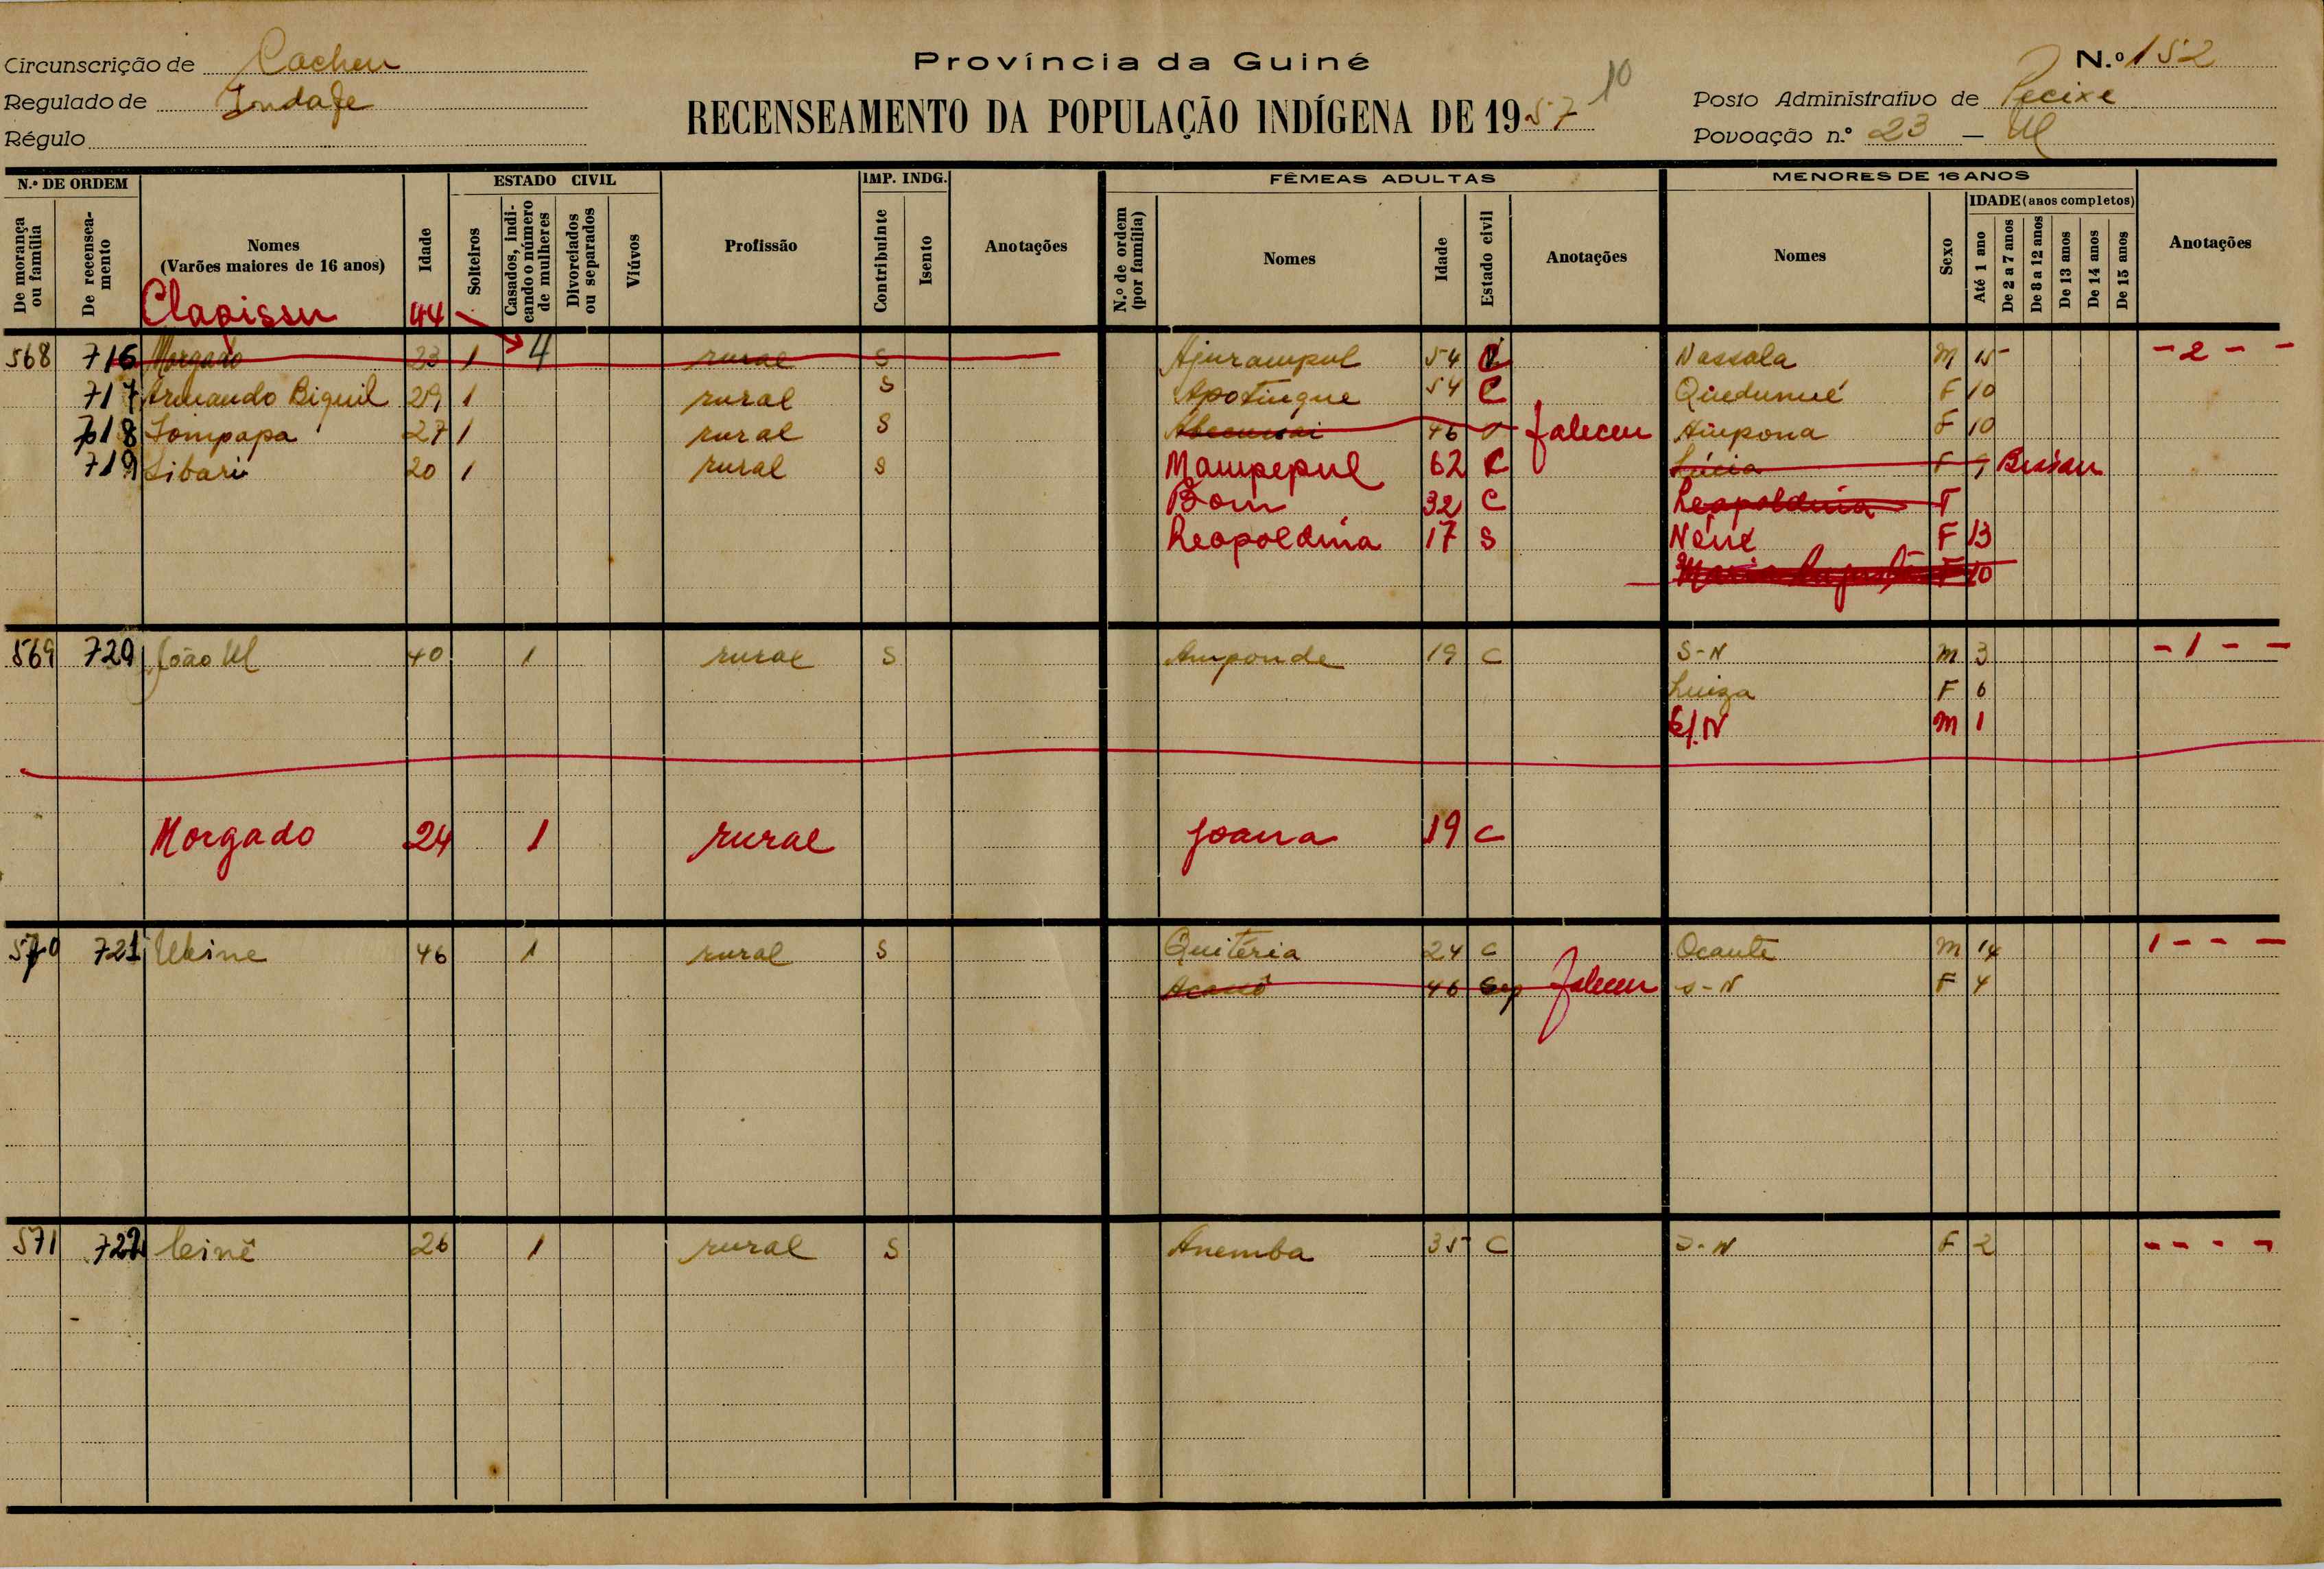 Província da Guiné
N.º 152
Circunscrição de Cacheu
Regulado de Jndafe
Régulo
RECENSEAMENTO DA POPULAÇÃO INDÍGENA DE 1957
10
Posto Administrativo de Pecixe
Povoação n.º 23 — Ul
N.º DE ORDEM
De morança ou família
De recenseamento
Nomes
(Varões maiores de 16 anos)
Idade
ESTADO CIVIL
Solteiros
Casados, indicando o número de mulheres
Divorciados ou separados
Viúvos
Profissão
IMP. INDG.
Contribuinte
Isento
Anotações
FÊMEAS ADULTAS
N.º de ordem (por família)
Nomes
Idade
Estado civil
Anotações
MENORES DE 16 ANOS
Nomes
Sexo
IDADE (anos completos)
Até 1 ano
De 2 a 7 anos
De 8 a 12 anos
De 13 anos
De 14 anos
De 15 anos
Anotações
Clapissu 44
568 716 Morgado 23 1 4 rural S Ajurampul 54 C Nassala M 15 - 2 - -
717 Armando Biquil 29 1 rural S Apotingue 54 C Quedumué F 10
718 Jompapa 27 1 rural S 46 faleceu Aimpona F 10
719 Libari 20 1 rural S Mampepul 62 C Lúcia F 9 Bissau
Bom 32 C Leopoldina F
Leopoldina 17 S Nené F 13
F 10
569 720 João Ul 40 1 rural S Amponde 19 C S-N M 3 - 1 - -
Luiza F 6
S/N M 1
Morgado 24 1 rural Joana 19 C
570 721 Ukine 46 1 rural S Quitéria 24 C Ocante M 14 1 - - -
46 Sep faleceu S-N F 4
571 722 26 1 rural S Anemba 35 C S-N F 2 - - - -